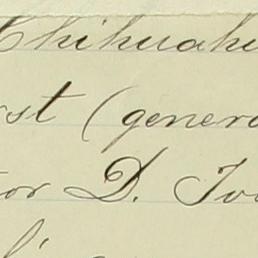 Chihuahu
rst (genera
or D. Jo